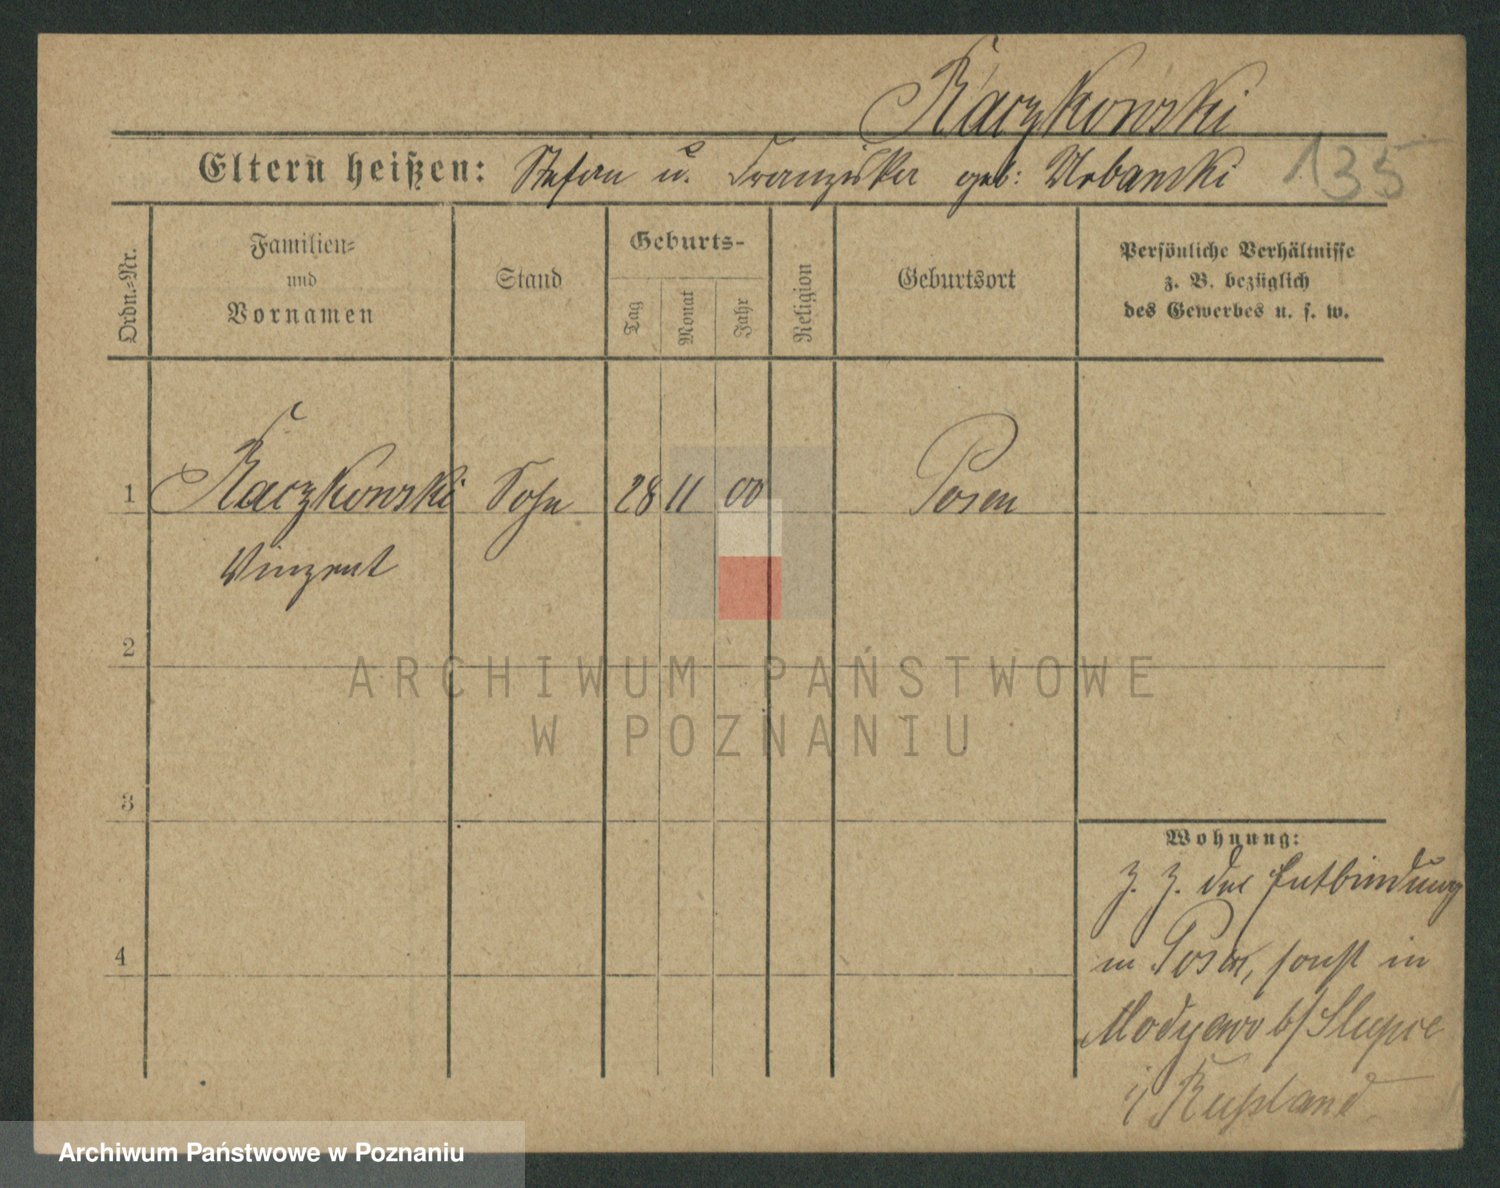 Kaczkowski
135
Eltern heißen: Stefan u. Franziska geb: Urbanski
Ordn.-Nr.
Familien-
und
Vornamen
Stand
Geburts-
Tag
Monat
Jahr
Religion
Geburtsort
Persönliche Verhältnisse
z. B. bezüglich
des Gewerbes u. s. w.
1 Kaczkowski Sohn 28 11 00 Posen
Vinzent
2
ARCHIWUM PAŃSTWOWE
W POZNANIU
3
Wohnung:
z. Z. der Entbindung
in Posen, sonst in
4
b/ Slupce
i/ Rußland
Archiwum Państwowe w Poznaniu